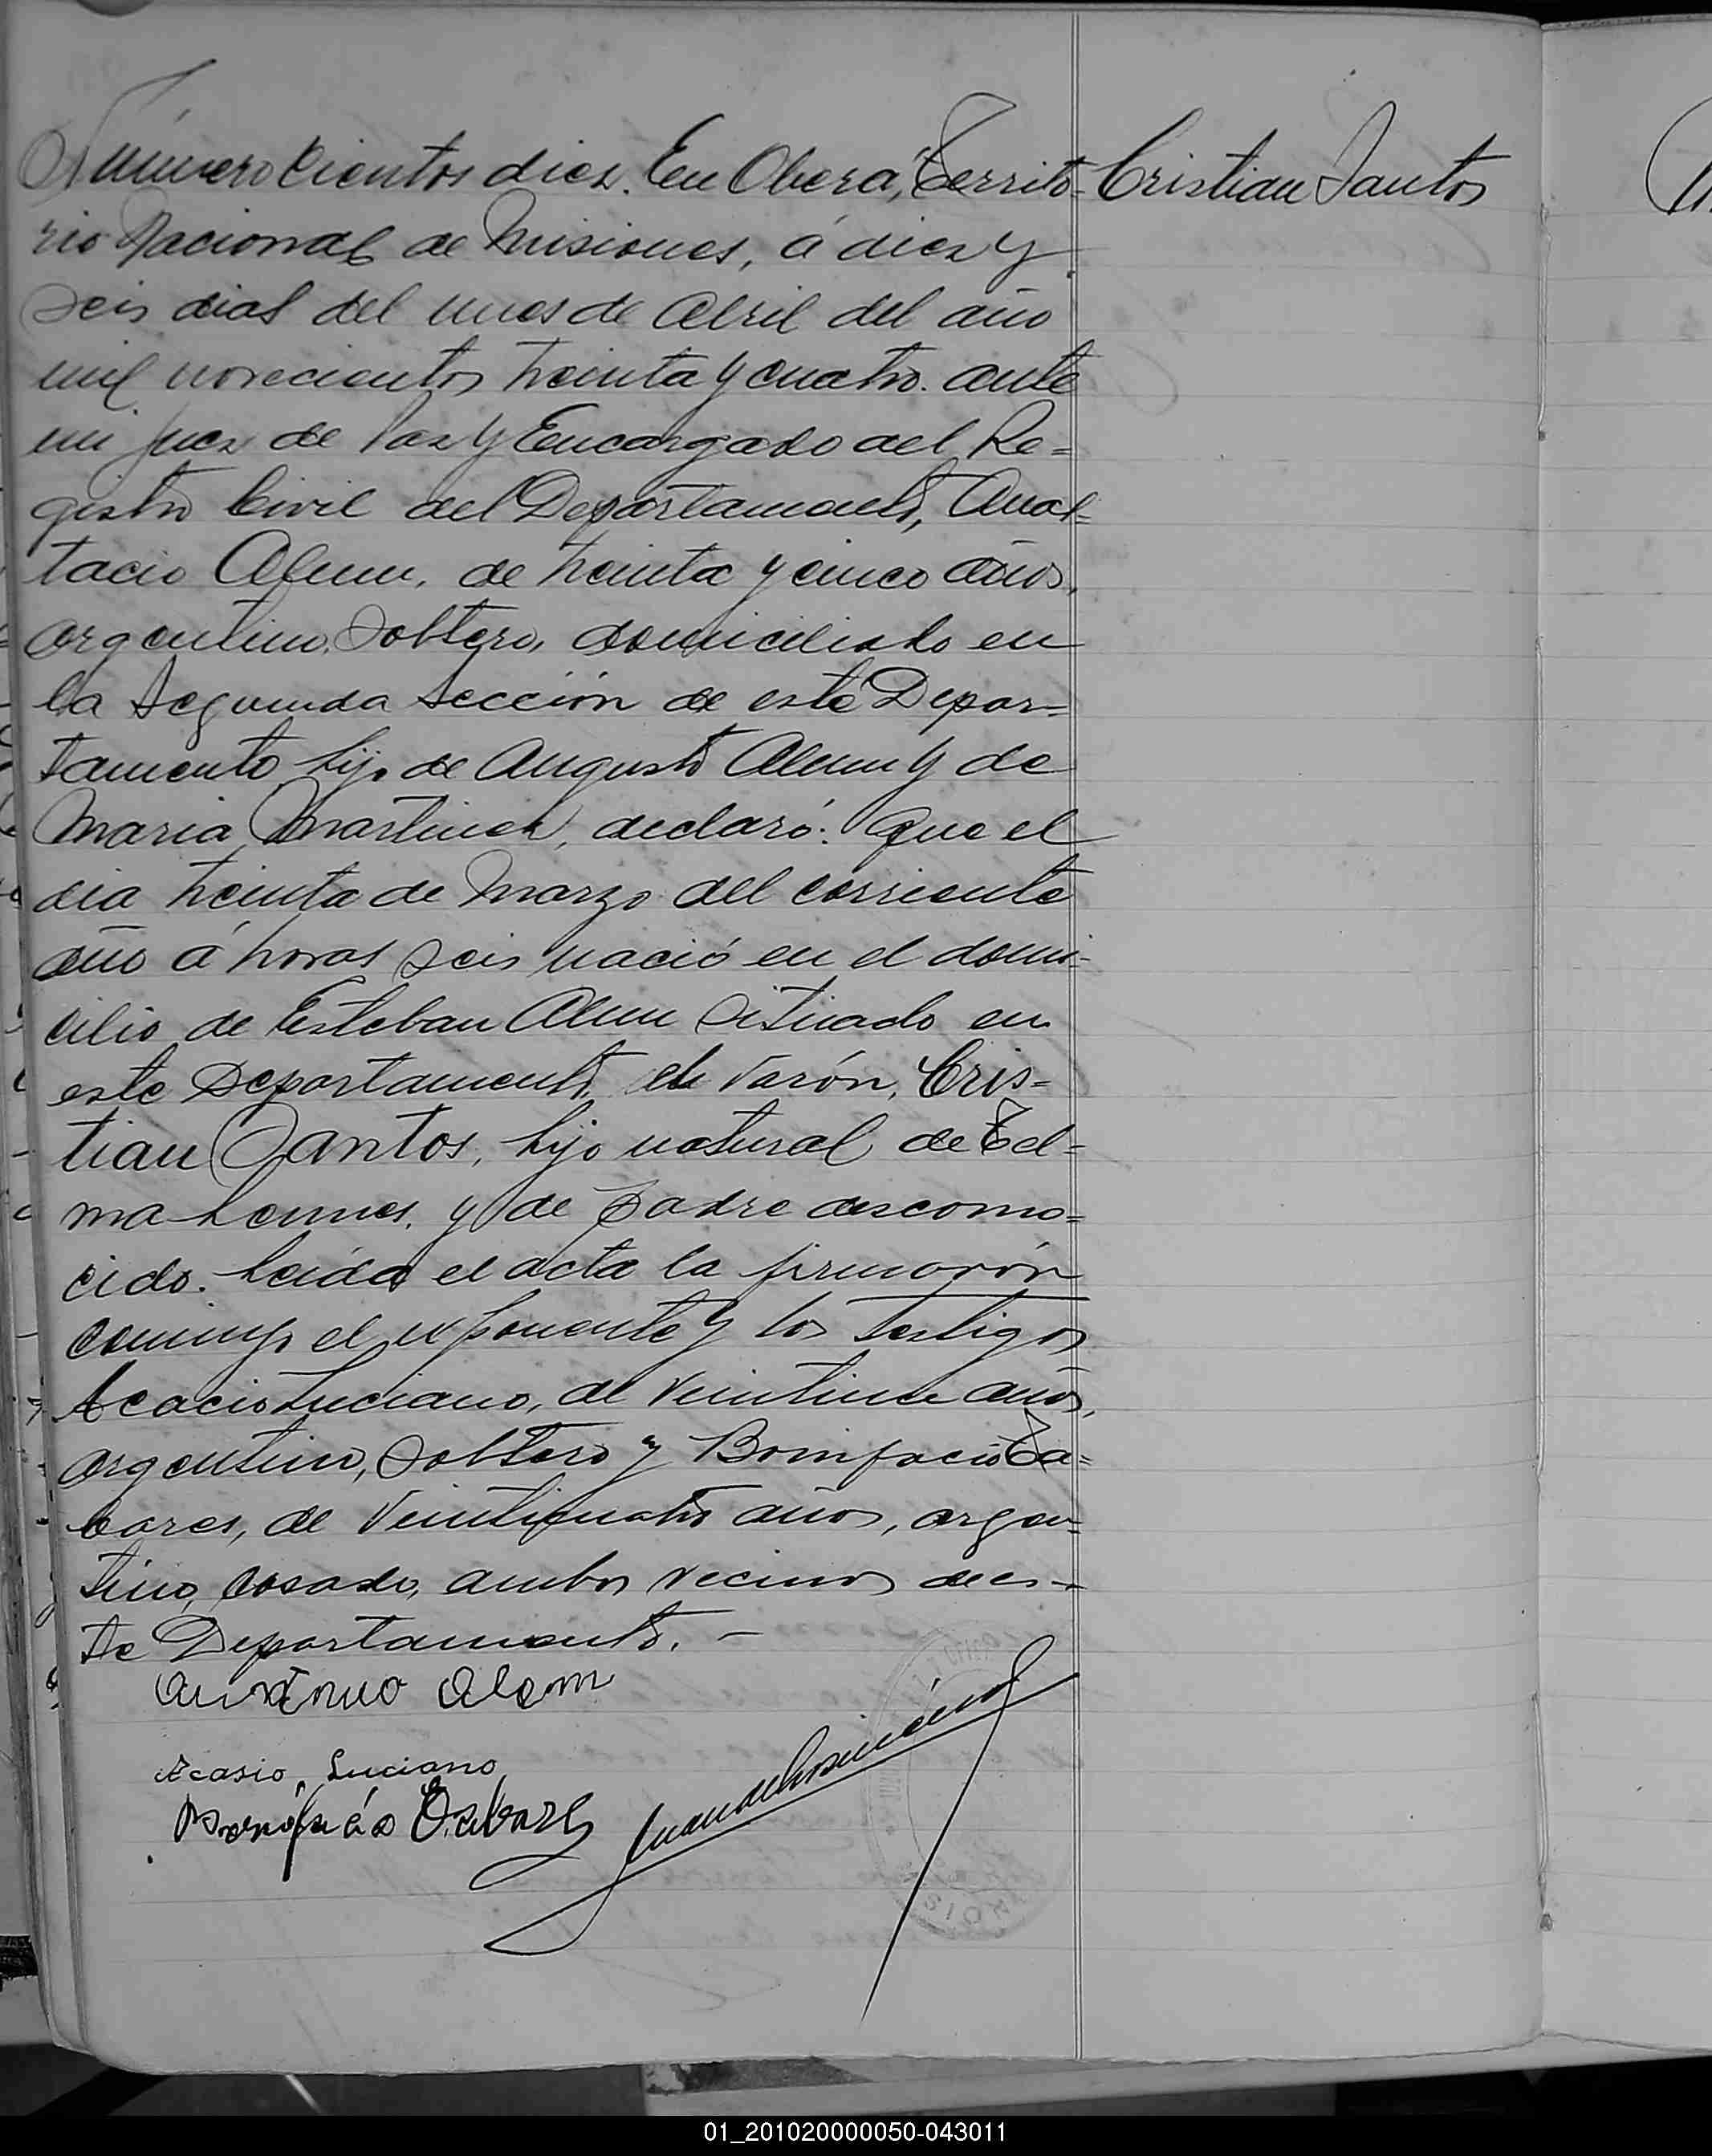 Número Cientos diez. En Oberá, Territo- Cristian Santos
rio Nacional de Misiones, á diez y
seis dias del mes de Abril del año
mil novecientos treinta y cuatro. ante
mi Juez de Paz y Encargado del Re=
gistro Civil del Departamento, Anas=
tacio Alem, de treinta y cinco años,
argentino, Soltero, domiciliado en
la Segunda Sección de este Depar=
tamento hijo de Augusto Alem y de
Maria Martinez, declaró: Que el
dia treinta de Marzo del corriente
año á horas seis nació en el domi-
cilio de Esteban Alem Situado en
este Departamento, el varón, Cris=
tian Santos, hijo natural de Tel=
ma y de padre descono=
cido. Leida el acta la firmarón
conmigo el exponente y los testigos
Acacio Luciano, de Veintiun años,
argentino, Soltero y Bonifacio Ta=
bares, de Veinticuatro años, argen=
tino, casado, ambos vecinos de es-
te Departamento. -
Alem
Acasio, Luciano
Bonifacio Tabares